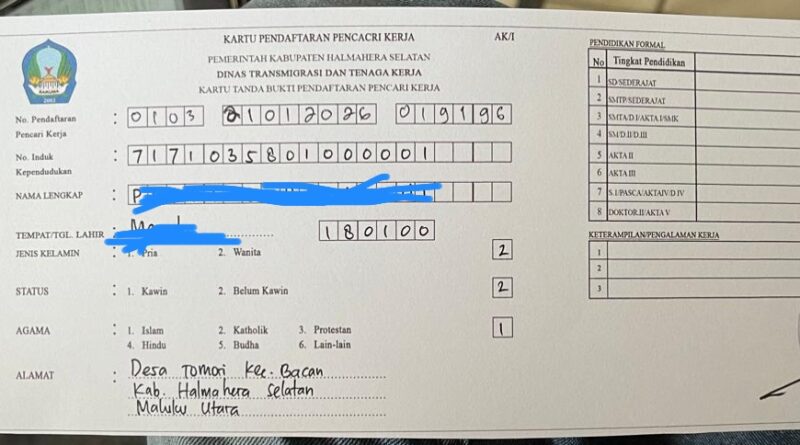 KARTU PENDAFTARAN PENCACRI KERJA
AK/I
PEMERINTAH KABUPATEN HALMAHERA SELATAN
DINAS TRANSMIGRASI DAN TENAGA KERJA
KARTU TANDA BUKTI PENDAFTARAN PENCARI KERJA
No. Pendaftaran Pencari Kerja : 0103 21012026 019196
No. Induk Kependudukan : 7171035801000001
NAMA LENGKAP : P
TEMPAT/TGL. LAHIR : 180100
JENIS KELAMIN : 1. Pria 2. Wanita 2
STATUS : 1. Kawin 2. Belum Kawin 2
AGAMA : 1. Islam 2. Katholik 3. Protestan 1
4. Hindu 5. Budha 6. Lain-lain
ALAMAT : Desa Tomori Kec. Bacan
Kab. Halmahera Selatan
Maluku Utara
PENDIDIKAN FORMAL
No Tingkat Pendidikan
1 SD/SEDERAJAT
2 SMTP/SEDERAJAT
3 SMTA/D.I/AKTA I/SMK
4 SM/D.II/D.III
5 AKTA II
6 AKTA III
7 S.1/PASCA/AKTA IV/D IV
8 DOKTOR.II/AKTA V
KETERAMPILAN/PENGALAMAN KERJA
1
2
3